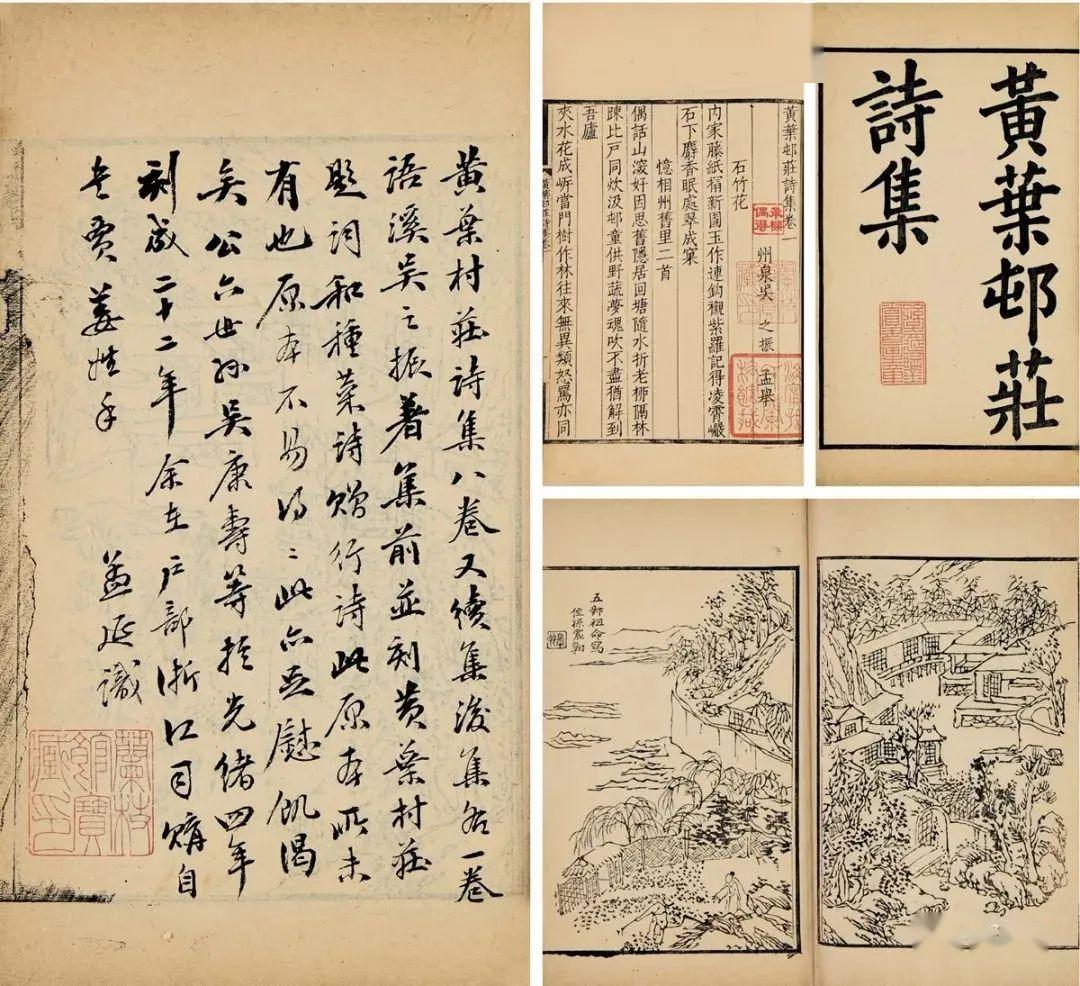 黃葉村莊詩集八卷又續集後集各一卷
語溪吳之振著集前並刻黃葉村莊
題詞和種菜詩贈行詩此原本所未
有也原本不易得〻此亦足慰飢渴
矣公六世孫吳康壽等於光緒四年
刻成二十二年余在戶部浙江司購自
老賈姜姓手
孟延識
黃葉邨莊詩集卷一
州泉吳之振孟舉
石竹花
內家藤紙搨新圖玉作連鉤襯紫羅記得凌霄巖
石下麝香眠處翠成窠
憶相州舊里二首
偶話山深好因思舊隱居回塘隨水折老栁隔林
踈比戶同炊汲邨童供野蔬夢魂吹不盡猶解到
吾廬
夾水花成㟁當門樹作林往來無異類怒罵亦同
黃葉邨莊詩集卷一
黃葉邨莊
詩集
五叔祖命寫
侄孫宸翔